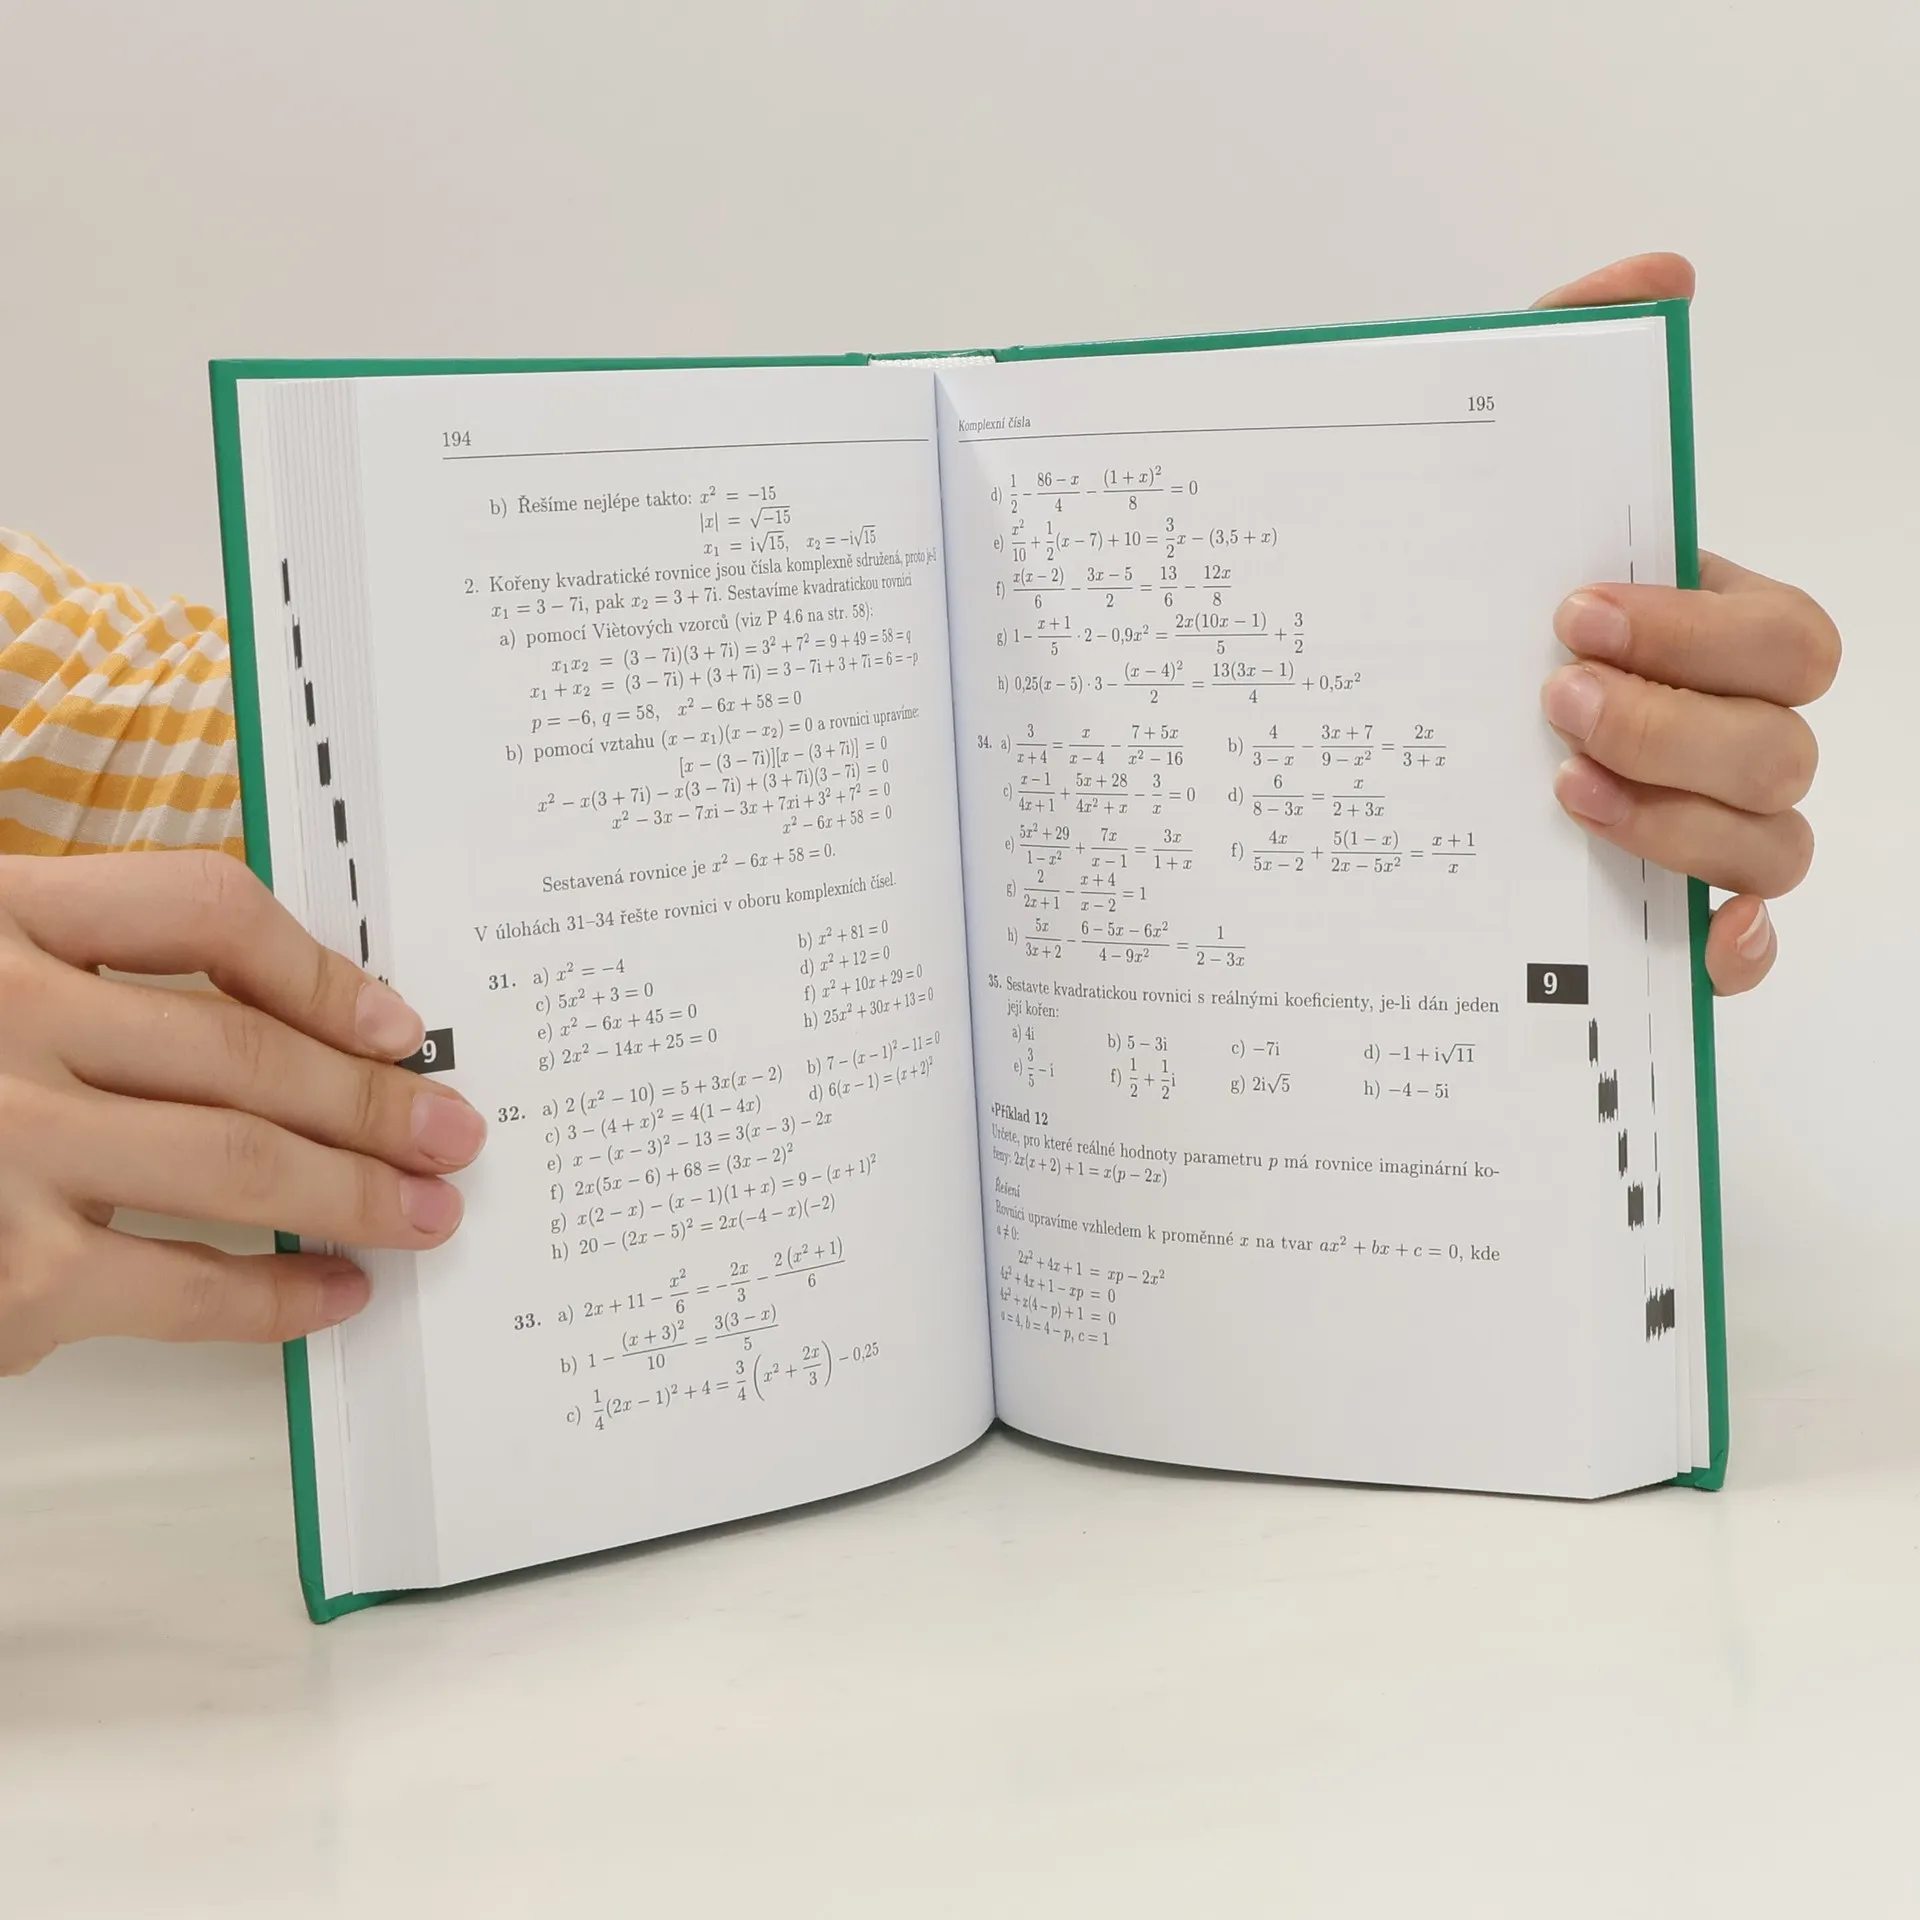 194
b) Řešíme nejlépe takto: x² = −15
|x| = √−15
x₁ = i√15, x₂ = −i√15
2. Kořeny kvadratické rovnice jsou čísla komplexně sdružená, proto je-li
x₁ = 3 − 7i, pak x₂ = 3 + 7i. Sestavíme kvadratickou rovnici
a) pomocí Viètových vzorců (viz P 4.6 na str. 58):
x₁x₂ = (3 − 7i)(3 + 7i) = 3² + 7² = 9 + 49 = 58 = q
x₁ + x₂ = (3 − 7i) + (3 + 7i) = 3 − 7i + 3 + 7i = 6 = −p
p = −6, q = 58, x² − 6x + 58 = 0
b) pomocí vztahu (x − x₁)(x − x₂) = 0 a rovnici upravíme:
[x − (3 − 7i)][x − (3 + 7i)] = 0
x² − x(3 + 7i) − x(3 − 7i) + (3 + 7i)(3 − 7i) = 0
x² − 3x − 7xi − 3x + 7xi + 3² + 7² = 0
x² − 6x + 58 = 0
Sestavená rovnice je x² − 6x + 58 = 0.
V úlohách 31–34 řešte rovnici v oboru komplexních čísel.
31. a) x² = −4 b) x² + 81 = 0
c) 5x² + 3 = 0 d) x² + 12 = 0
e) x² − 6x + 45 = 0 f) x² + 10x + 29 = 0
g) 2x² − 14x + 25 = 0 h) 25x² + 30x + 13 = 0
32. a) 2(x² − 10) = 5 + 3x(x − 2) b) 7 − (x − 1)² − 11 = 0
c) 3 − (4 + x)² = 4(1 − 4x) d) 6(x − 1) = (x + 2)²
e) x − (x − 3)² − 13 = 3(x − 3) − 2x
f) 2x(5x − 6) + 68 = (3x − 2)²
g) x(2 − x) − (x − 1)(1 + x) = 9 − (x + 1)²
h) 20 − (2x − 5)² = 2x(−4 − x)(−2)
33. a) 2x + 11 − x²/6 = −2x/3 − 2(x² + 1)/6
b) 1 − (x + 3)²/10 = 3(3 − x)/5
c) 1/4(2x − 1)² + 4 = 3/4(x² + 2x/3) − 0,25
9
Komplexní čísla 195
d) 1/2 − 86 − x/4 − (1 + x)²/8 = 0
e) x²/10 + 1/2(x − 7) + 10 = 3/2x − (3,5 + x)
f) x(x − 2)/6 − 3x − 5/2 = 13/6 − 12x/8
g) 1 − x + 1/5 · 2 − 0,9x² = 2x(10x − 1)/5 + 3/2
h) 0,25(x − 5) · 3 − (x − 4)²/2 = 13(3x − 1)/4 + 0,5x²
34. a) 3/x + 4 = x/x − 4 − 7 + 5x/x² − 16 b) 4/3 − x − 3x + 7/9 − x² = 2x/3 + x
c) x − 1/4x + 1 + 5x + 28/4x² + x − 3/x = 0 d) 6/8 − 3x = x/2 + 3x
e) 5x² + 29/1 − x² + 7x/x − 1 = 3x/1 + x f) 4x/5x − 2 + 5(1 − x)/2x − 5x² = x + 1/x
g) 2/2x + 1 − x + 4/x − 2 = 1
h) 5x/3x + 2 − 6 − 5x − 6x²/4 − 9x² = 1/2 − 3x
35. Sestavte kvadratickou rovnici s reálnými koeficienty, je-li dán jeden
její kořen:
a) 4i b) 5 − 3i c) −7i d) −1 + i√11
e) 3/5 − i f) 1/2 + 1/2i g) 2i√5 h) −4 − 5i
Příklad 12
Určete, pro které reálné hodnoty parametru p má rovnice imaginární ko-
řeny: 2x(x + 2) + 1 = x(p − 2x)
Řešení
Rovnici upravíme vzhledem k proměnné x na tvar ax² + bx + c = 0, kde
a ≠ 0:
2x² + 4x + 1 = xp − 2x²
4x² + 4x + 1 − xp = 0
4x² + x(4 − p) + 1 = 0
a = 4, b = 4 − p, c = 1
9